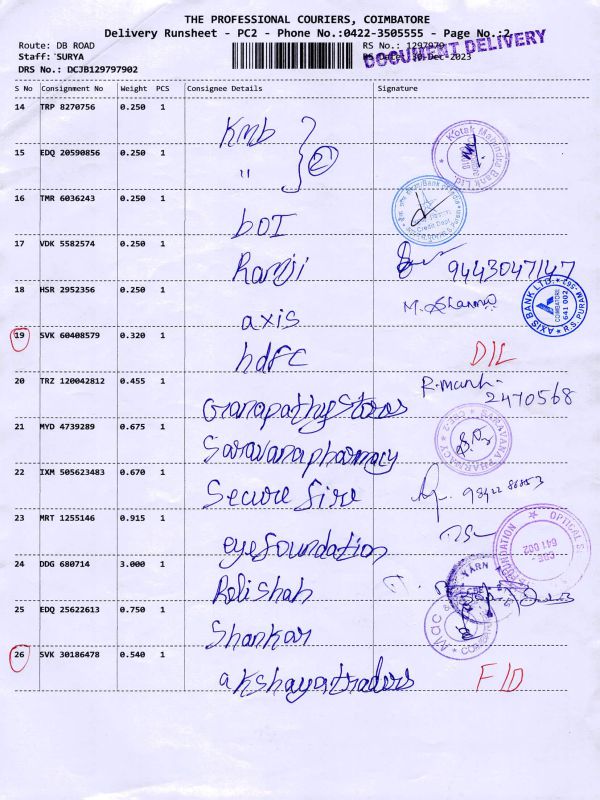 THE PROFESSIONAL COURIERS, COIMBATORE
Delivery Runsheet - PC2 - Phone No.:0422-3505555 - Page No.:2
Route: DB ROAD RS No.: 1297979
Staff: SURYA RS Date: 30-Dec-2023
DOCUMENT DELIVERY
DRS No.: DCJB129797902
S No Consignment No Weight PCS Consignee Details Signature
14 TRP 8270756 0.250 1 Kmb
Kotak Mahindra Bank Ltd.
15 EDQ 20590856 0.250 1 " 2
16 TMR 6036243 0.250 1 bOI
17 VDK 5582574 0.250 1 Ramji 9443047147
18 HSR 2952356 0.250 1 axis
AXIS BANK LTD. COIMBATORE 641 002 R.S. PURAM
19 SVK 60408579 0.320 1 hdfc D/L
20 TRZ 120042812 0.455 1 Ganapathy Stores 2470568
21 MYD 4739289 0.675 1 Saravana pharmacy
SARAVANA PHARMACY CBE-2
22 IXM 505623483 0.670 1 Secure fire
23 MRT 1255146 0.915 1 eye foundation
FOUNDATION OPTICAL CBE - 641 002
24 DDG 680714 3.000 1 Reli Shah
YARN
25 EDQ 25622613 0.750 1 Shankar
26 SVK 30186478 0.540 1 akshaya traders F/D